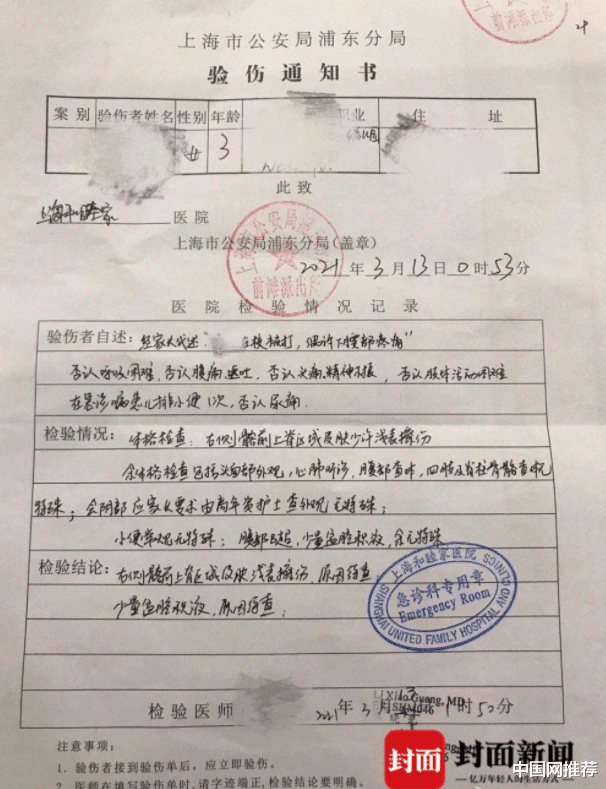 前滩派出所
上海市公安局浦东分局
验伤通知书
案别 验伤者姓名 性别 年龄 职业 住 址
女 3
此致
上海和睦家 医院
上海市公安局浦东分局(盖章)
上海市公安局浦东分局
前滩派出所
2021 年 3 月 13 日 0 时 53 分
医院检验情况记录
验伤者自述: 在校被打, 下腹部疼痛"
否认呼吸困难, 否认腹痛、呕吐, 否认头痛、精神不振, 否认肢体活动困难
在急诊 患儿排小便1次, 否认尿痛.
检验情况: 体格检查: 右侧髂前上脊区域皮肤少许浅表擦伤
余体格检查包括头面部外观, 心肺听诊, 腹部查体, 四肢及脊柱骨骼查体无
特殊; 会阴部应家长要求由高年资护士查外观无特殊;
小便常规无特殊; 腹部B超: 少量盆腔积液, 余无特殊
检验结论: 右侧髂前上脊区域皮肤浅表擦伤, 原因待查
少量盆腔积液, 原因待查;
上海和睦家医院
急诊科专用章
Emergency Room
SHANGHAI UNITED FAMILY HOSPITAL AND CLINICS
检验医师 2021 年 3 月 13 1 时 50 分
注意事项:
1. 验伤者接到验伤单后, 应立即验伤。
2. 医师在填写验伤单时, 请字迹端正, 检验结论要明确。
封面
封面新闻
亿万年轻人的生活方式
中国网推荐